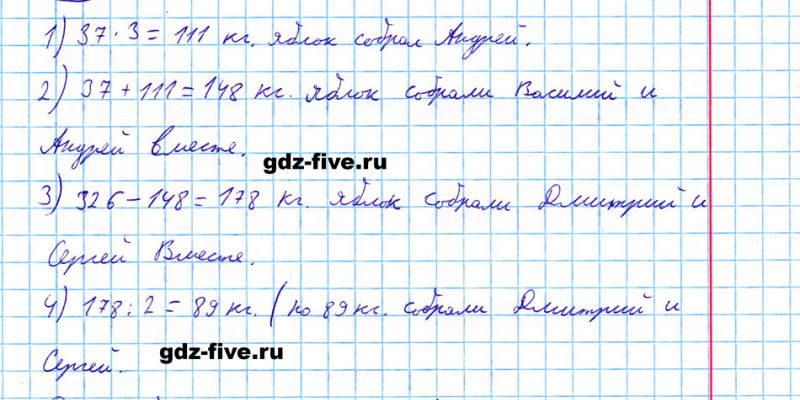 1) 37 · 3 = 111 кг. яблок собрал Андрей.
2) 37 + 111 = 148 кг. яблок собрали Василий и
Андрей вместе.
gdz-five.ru
3) 326 - 148 = 178 кг. яблок собрали Дмитрий и
Сергей Вместе.
4) 178 : 2 = 89 кг. ( по 89 кг. собрали Дмитрий и
Сергей.
gdz-five.ru